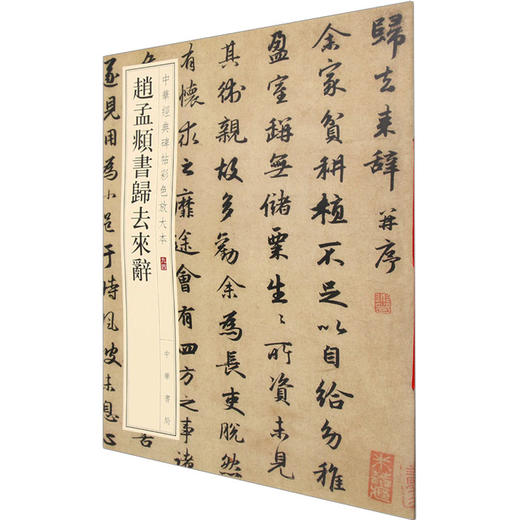 歸去来辞 并序
余家貧耕植不足以自給幼稚
盈室缾無儲粟生〻所資未見
其術親故多勸余為長吏脫然
有懷求之靡途會有四方之事諸
遂見用為小邑于時風波未息心
中華經典碑帖彩色放大本
趙孟頫書歸去來辭
中華書局